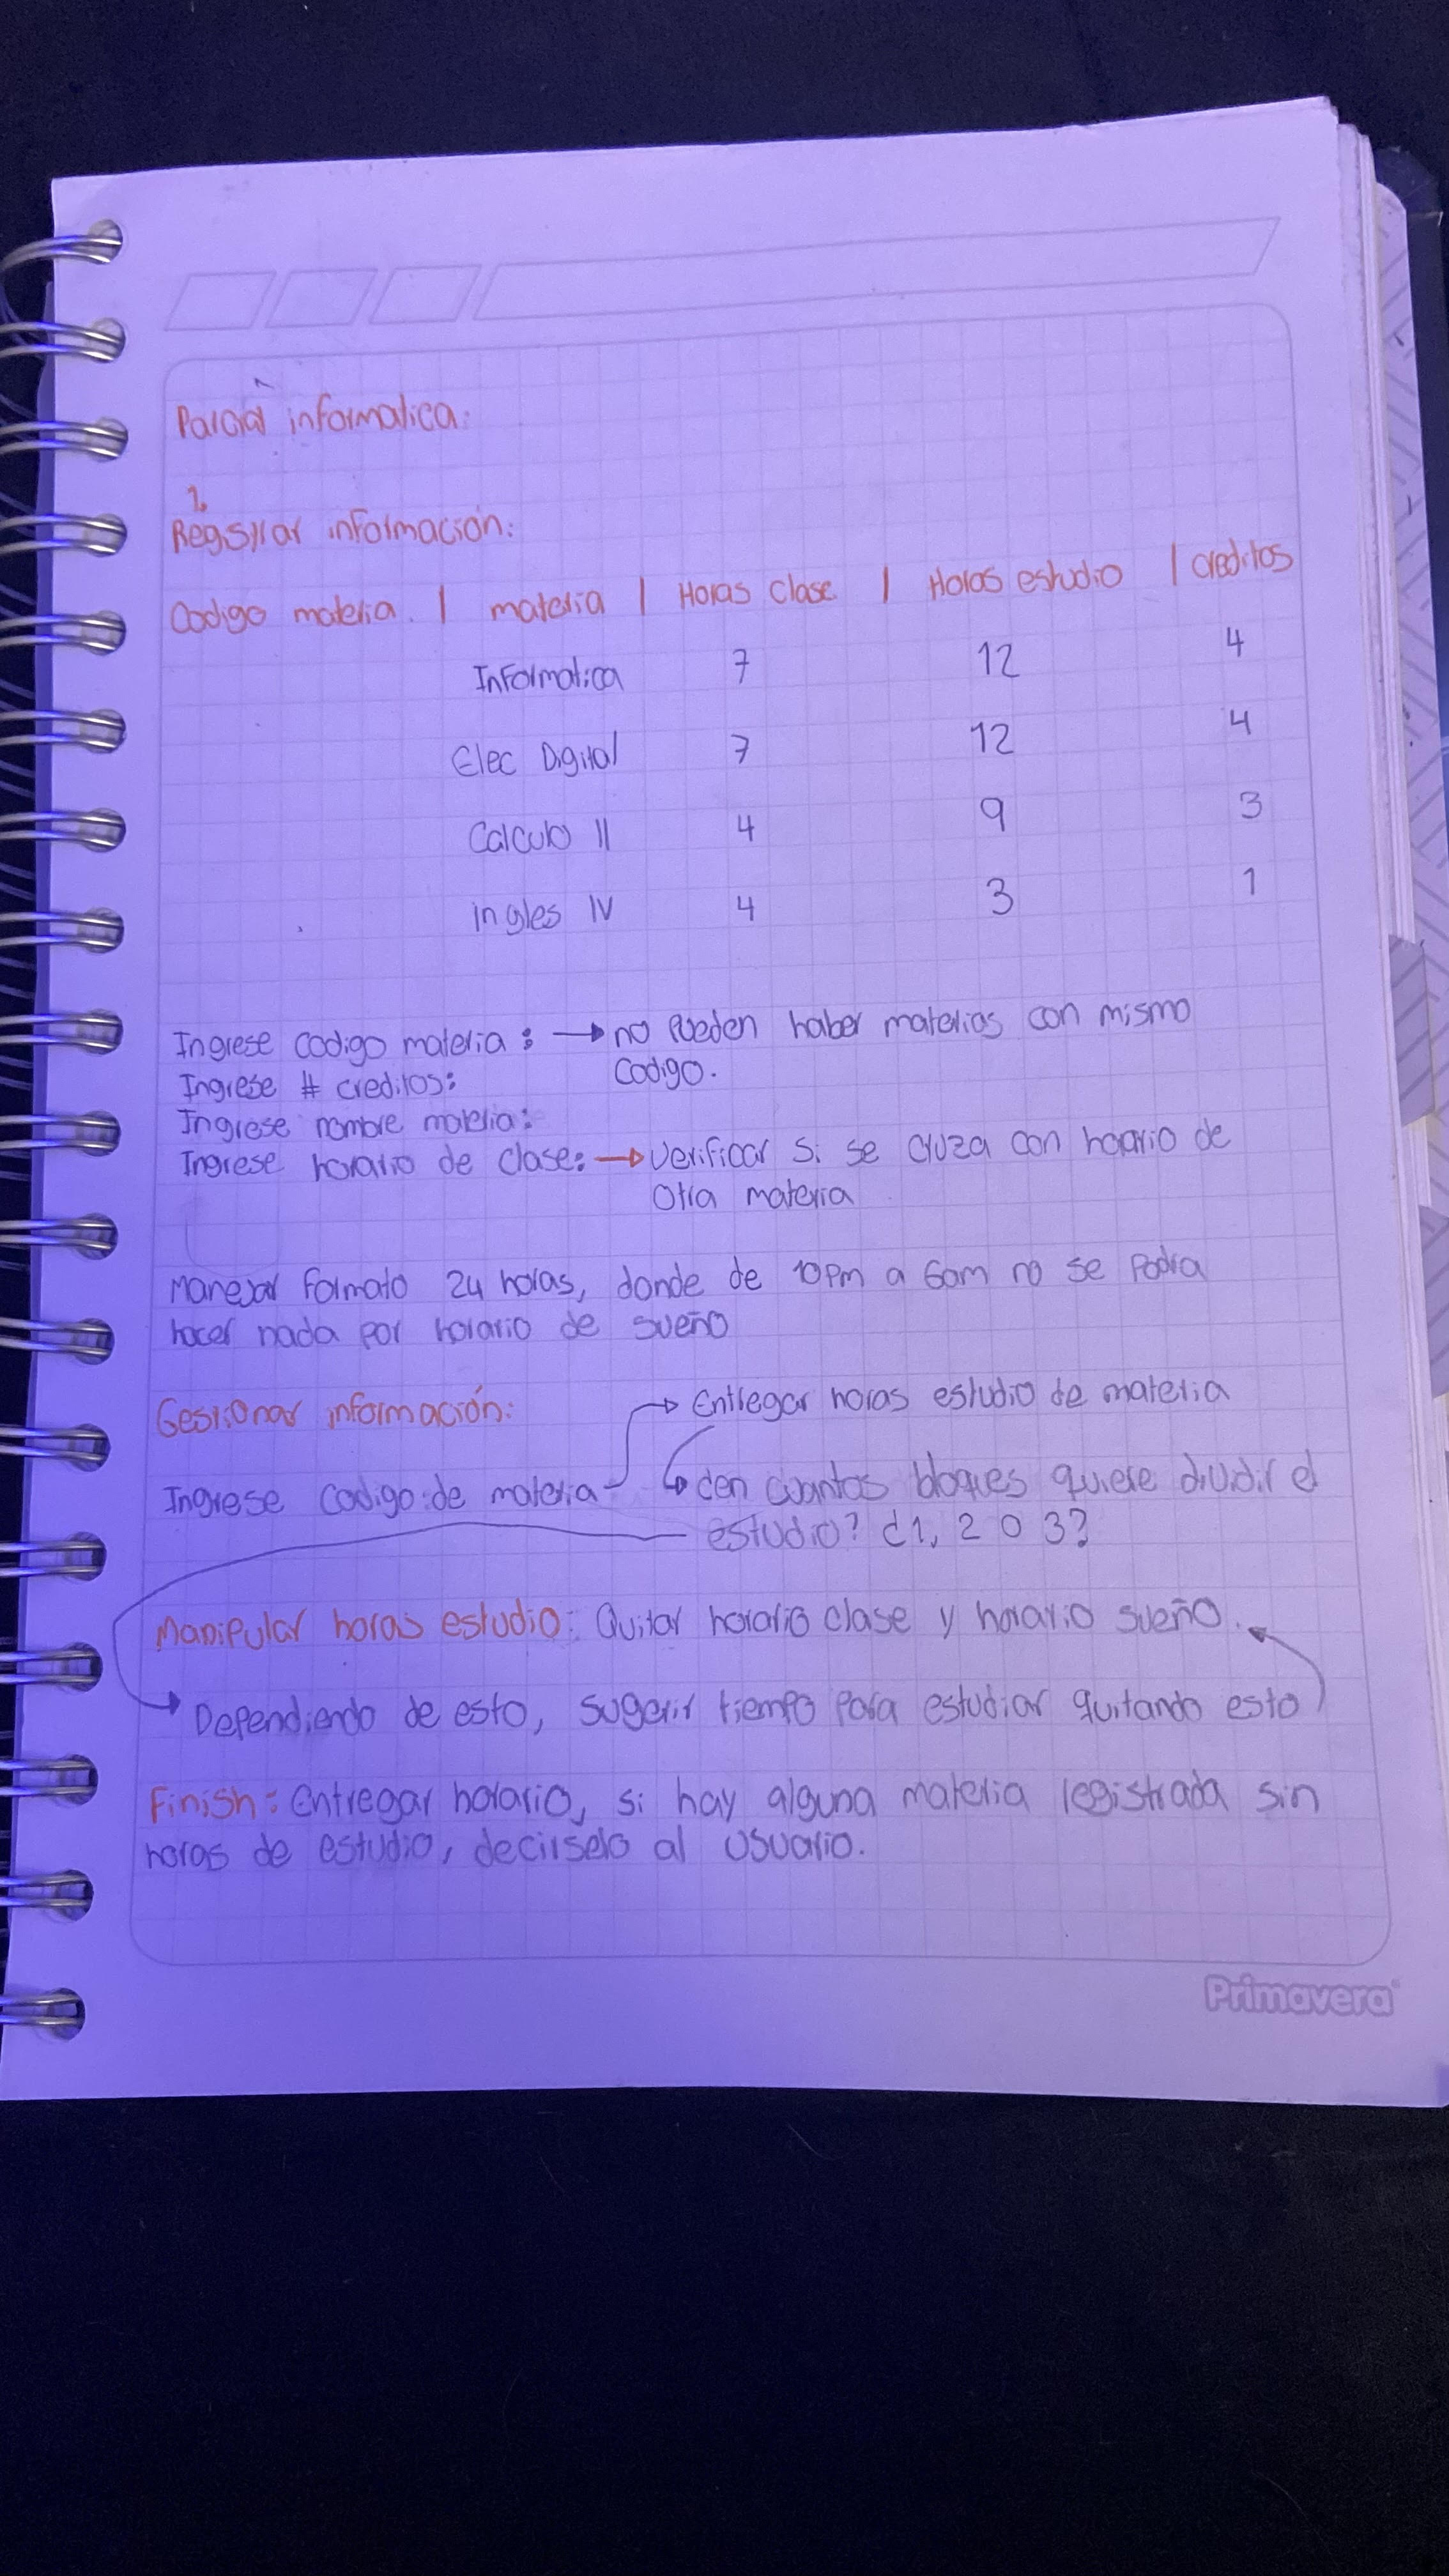 Parcial informatica:
1.
Registrar información:
Codigo materia. | materia | Horas clase | Horas estudio | creditos
Informatica 7 12 4
Elec Digital 7 12 4
Calculo II 4 9 3
ingles IV 4 3 1
Ingrese codigo materia: → no pueden haber materias con mismo
codigo.
Ingrese # creditos:
Ingrese nombre materia:
Ingrese horario de clase: → Verificar si se cruza con horario de
otra materia
Manejar formato 24 horas, donde de 10pm a 6am no se podra
hacer nada por horario de sueño
Gestionar información:
Ingrese codigo de materia → Entregar horas estudio de materia
↳ ¿en cuantos bloques quiere dividir el
estudio? ¿1, 2 o 3?
Manipular horas estudio: Quitar horario clase y horario sueño.
→ Dependiendo de esto, sugerir tiempo para estudiar quitando esto
Finish: Entregar horario, si hay alguna materia registrada sin
horas de estudio, decirselo al usuario.
Primavera